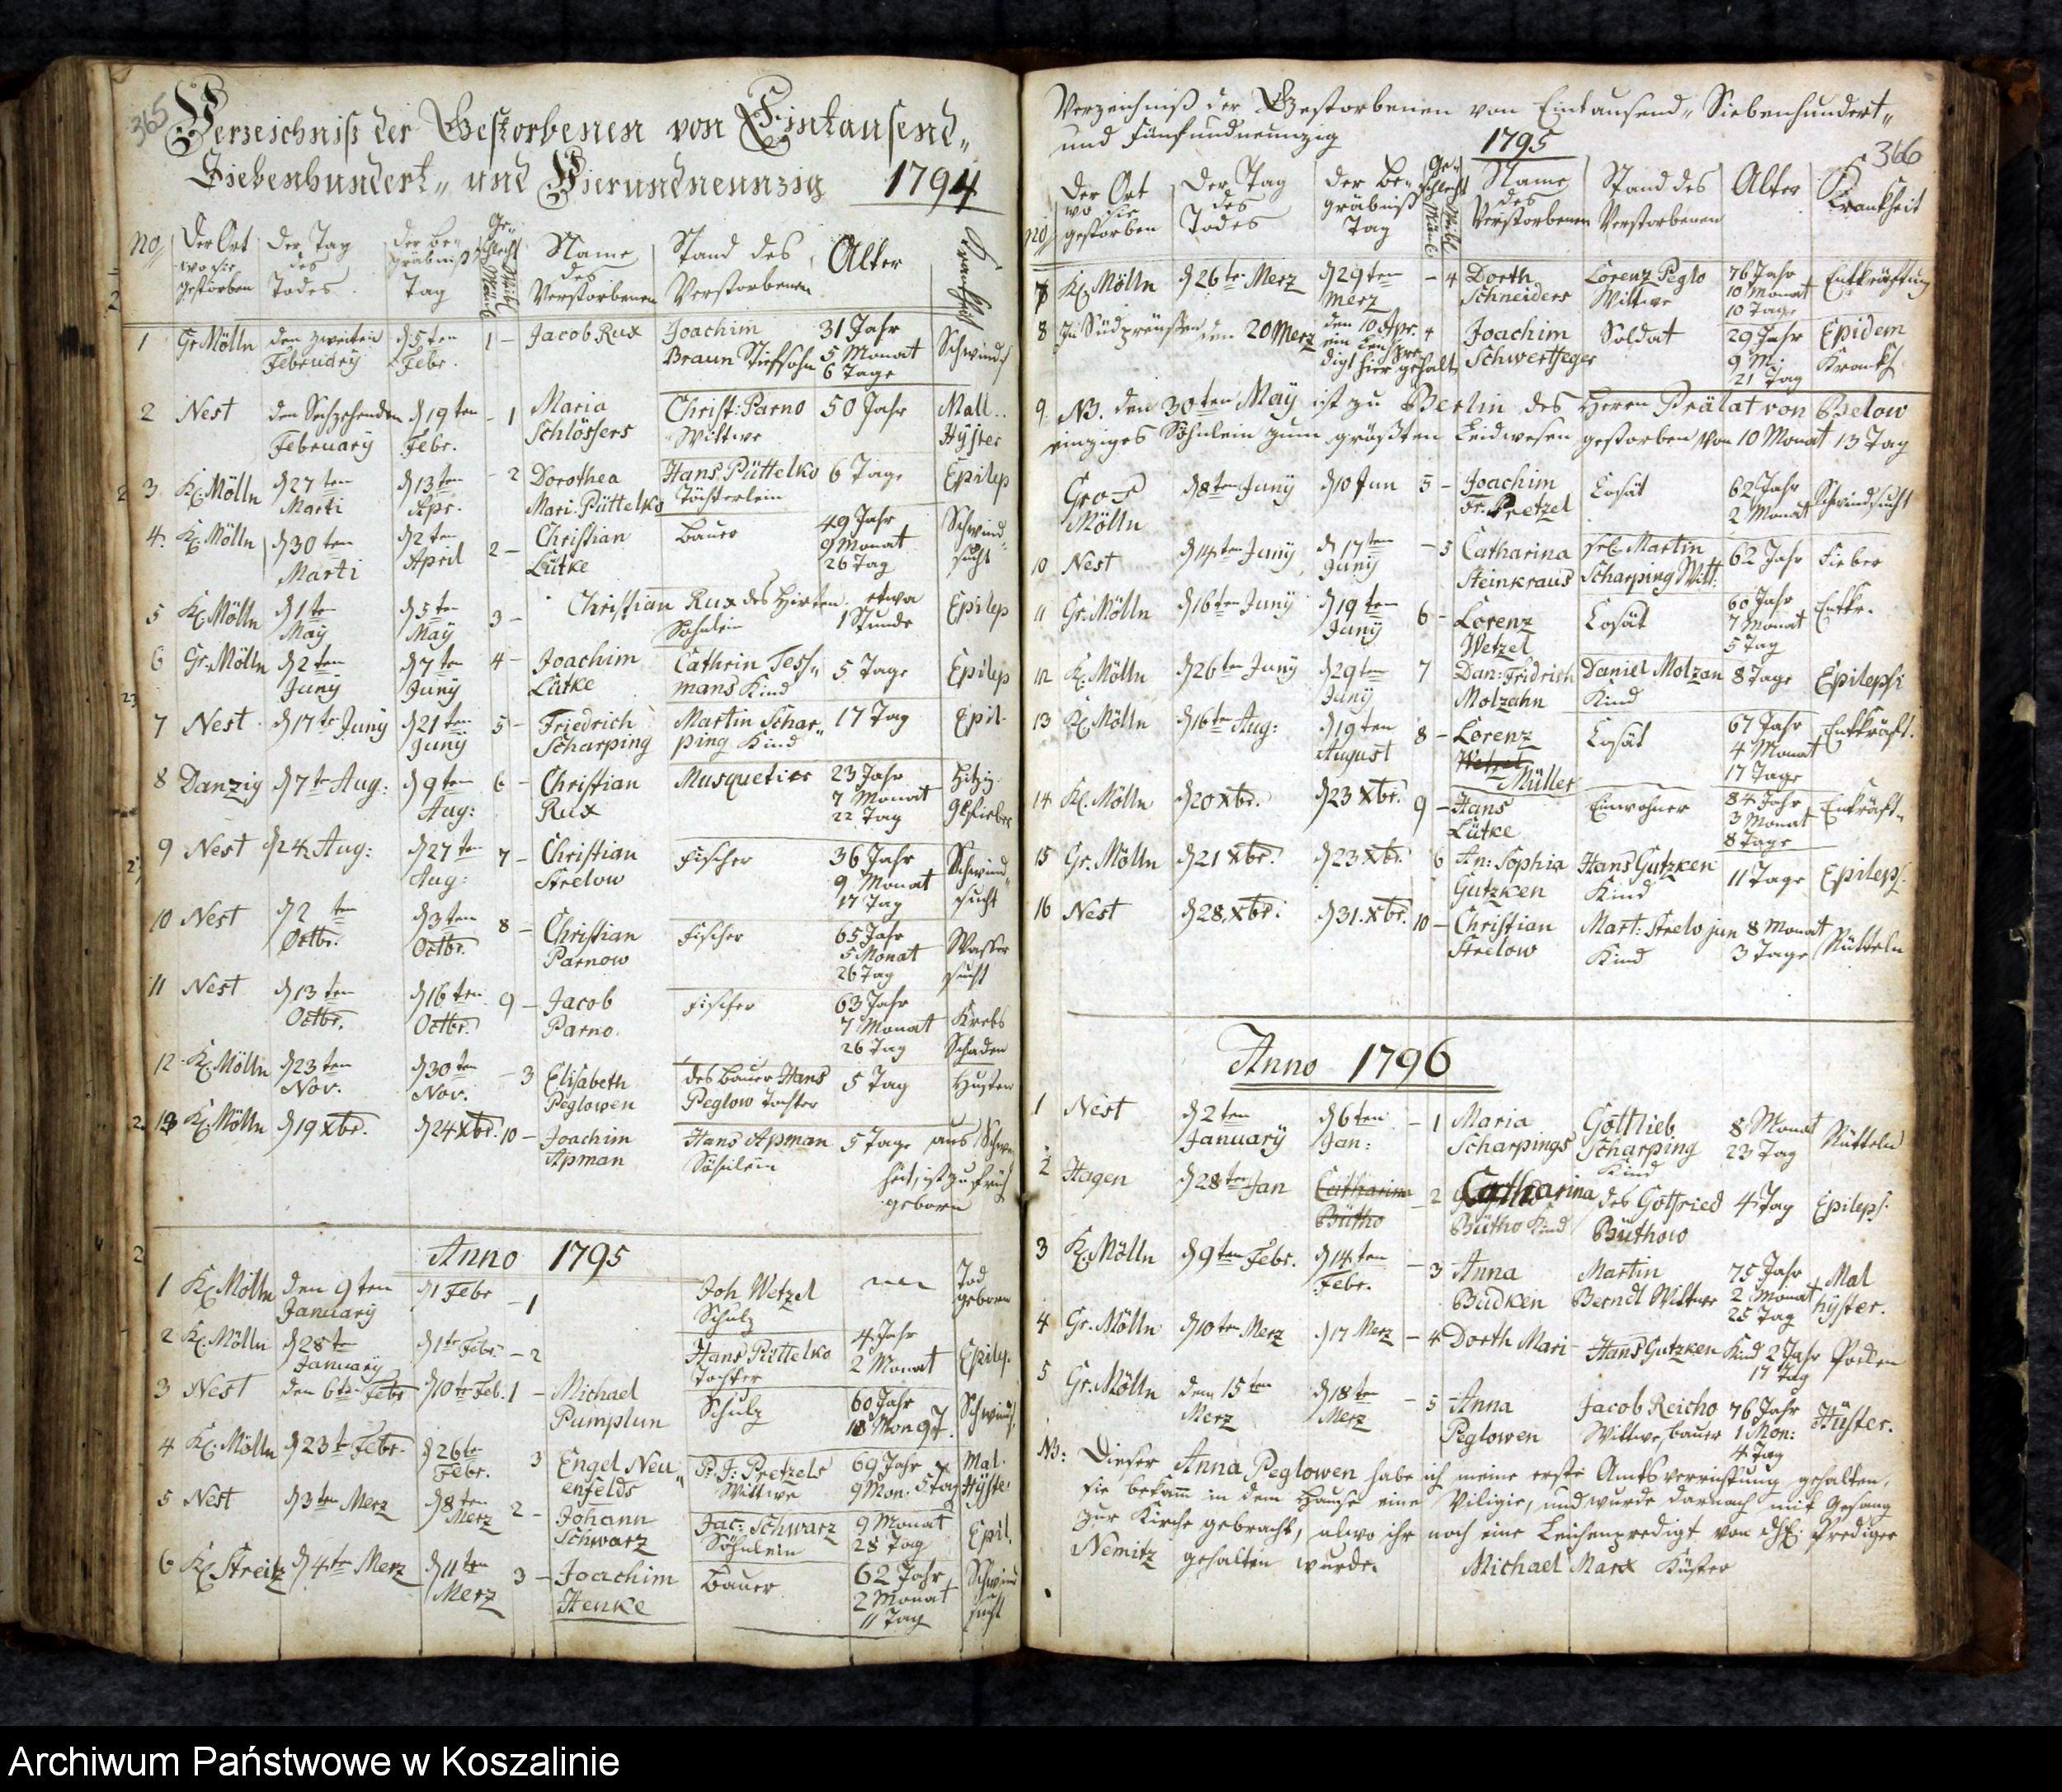 365
Verzeichniß der Gestorbenen von Eintausend"
Siebenhundert" und Vierundneunzig 1794
No
Der Ort wo sie gestorben
Der Tag des Todes
der Begräbniß Tag
Geschlecht Mänl Weibl
Name des Verstorbenen
Stand des Verstorbenen
Alter
Krankheit
1 Gr Mölln den zweiten February d 5ten Febr. 1 – Jacob Rux Joachim Braun Stiefsohn 31 Jahr 5 Monat 6 Tage Schwinds
2 Nest den Sechzehenden February d 19ten Febr. – 1 Maria Schlössers Christ: Parno Wittwe 50 Jahr Mall.. Hyster
3 Kl. Mölln d 27ten Marti d 13ten Apr. – 2 Dorothea Mari. Püttelko Hans Püttelko Töchterlein 6 Tage Epilep
4. Kl. Mölln d 30ten Marti d 2ten April 2 – Christian Lütke Bauer 49 Jahr 9 Monat 26 Tag Schwindsucht
5 Kl. Mölln d 1ten May d 5ten May 3 – Christian Rux des Hirten Söhnlein etwa 1 Stunde Epilep
6 Gr. Mölln d 2ten Juny d 7ten Juny 4 – Joachim Lütke Cathrin Tess" mans Kind 5 Tage Epilep
7 Nest d 17te Juny d 21ten Juny 5 – Friedrich Scharping Martin Schar" ping Kind 17 Tag Epil.
8 Danzig d 7te Aug: d 9ten Aug: 6 – Christian Rux Musquetier 23 Jahr 7 Monat 22 Tag Hitzig. Gsfieber
9 Nest d 24 Aug: d 27ten Aug: 7 – Christian Strelow Fischer 36 Jahr 9 Monat 17 Tag Schwind" sucht
10 Nest d 2ten Octbr. d 3ten Octbr. 8 – Christian Parnow Fischer 65 Jahr 5 Monat 26 Tag Wasser sucht
11 Nest d 13ten Octbr. d 16ten Octbr. 9 – Jacob Parno. Fischer 63 Jahr 7 Monat 26 Tag Krebs Schaden
12 Kl. Mölln d 23ten Nov: d 30ten Nov: – 3 Elisabeth Peglowen des Bauer Hans Peglow Tochter 5 Tag Husten
13 Kl. Mölln d 19 Xbr. d 24 Xbr. 10 – Joachim Apman Hans Apman Söhnlein 5 Tage aus Schwa
heit, ist zu früh
geboren
Anno 1795
1 Kl. Mölln den 9ten January d 1 Febr – 1 Joh Wetzel Schulz Tod geboren
2 Kl. Mölln d 28te January d 1te Febr. – 2 Hans Püttelko Tochter 4 Jahr 2 Monat Epilep.
3 Nest den 6ten Febr d 10te Feb. 1 – Michael Pumplun Schulz 60 Jahr 10 Mon 9 T. Schwinds.
4 Kl. Mölln d 23t Febr. d 26te Febr. 3 Engel Neu" enfelds P. J: Pretzels Wittwe 69 Jahr 9 Mon: 5 Tag Mal. Hyste:
5 Nest d 3ten Merz d 8ten Merz 2 – Johann Schwarz Jac: Schwarz Söhnlein 9 Monat 28 Tag Epil.
6 Kl Streitz d 4te Merz d 11ten Merz 3 – Joachim Henke Bauer 62 Jahr 2 Monat 11 Tag Schwind sucht
366
Verzeichniß der Gestorbenen von Eintausend" Siebenhundert"
und Fünfundneunzig 1795
No
Der Ort wo sie gestorben
Der Tag des Todes
der Begräbniß Tag
Geschlecht Mänl Weibl
Name des Verstorbenen
Stand des Verstorbenen
Alter
Krankheit
7 Kl. Mölln d 26te Merz d 29ten Merz – 4 Dorth Schneiders Lorenz Peglo Wittwe 76 Jahr 10 Monat 10 Tage Entkräftung
8 In Südpreußen den 20 Merz den 10 Apr. ein Leichpredigt hier gehalt. 4 Joachim Schwertfeger Soldat 29 Jahr 9 M: 21 Tag Epidem Krankh
9 NB. den 30ten May ist zu Berlin des Herrn Prälat von Below
einziges Söhnlein zum größten Leidwesen gestorben von 10 Monat 13 Tag
Gros Mölln d 8ten Juny d 10 Jun 5 – Joachim Fr. Pretzel Cosät 62 Jahr 2 Monat Schwindsucht
10 Nest d 14ten Juny d 17ten Juny – 5 Catharina Steinkraus sel. Martin Scharping Witt: 62 Jahr Fieber
11 Gr. Mölln d 16ten Juny d 19ten Juny 6 – Lorenz Wetzel Cosät 60 Jahr 7 Monat 5 Tag Entkr.
12 Kl. Mölln d 26te Juny d 29ten Juny 7 Dan: Fridrich Molzahn Daniel Molzan Kind 8 Tage Epilepsi
13 Kl. Mölln d 16te Aug: d 19ten August 8 – Lorenz Wetzel Müller Cosät 67 Jahr 4 Monat 17 Tage Entkräft.
14 Kl. Mölln d 20 Xbr. d 23 Xbr. 9 – Hans Lütke Einwohner 84 Jahr 3 Monat 8 Tage Entkräft"
15 Gr. Mölln d 21 Xbr. d 23 Xbr. 6 An: Sophia Gutzken Hans Gutzken Kind 11 Tage Epileps.
16 Nest d 28. Xbr. d 31. Xbr. 10 – Christian Strelow Mart: Strelo jun Kind 8 Monat 3 Tage Rütteln
Anno 1796
1 Nest d 2ten January d 6ten Jan: – 1 Maria Scharpings Gottlieb Scharping Kind 8 Monat 23 Tag Rütteln
2 Hagen d 28ten Jan Catharina Bütho – 2 Catharina Bütho Kind des Gotfried Büthow 4 Tag Epileps.
3 Kl. Mölln d 9ten Febr. d 14ten Febr. – 3 Anna Budken Martin Berndt Wittwe 75 Jahr 2 Monat 25 Tag Mal hyster.
4 Gr. Mölln d 10te Merz d 17 Merz – 4 Dorth Mari Hans Gutzken Kind 2 Jahr 17 Tag Pocken
5 Gr. Mölln dem 15ten Merz d 18ten Merz – 5 Anna Peglowen Jacob Reicho Wittwe, bauer 76 Jahr 1 Mon: 4 Tag Hüster.
NB: Dieser Anna Peglowen habe ich meine erste Amtsverrichtung gehalten,
sie bekam in dem Hause eine Viligie, und wurde darnach mit Gesang
zur Kirche gebracht, alwo ihr noch eine Leichenpredigt von dH: Prediger
Nemitz gehalten wurde. Michael Marx Küster
Archiwum Państwowe w Koszalinie